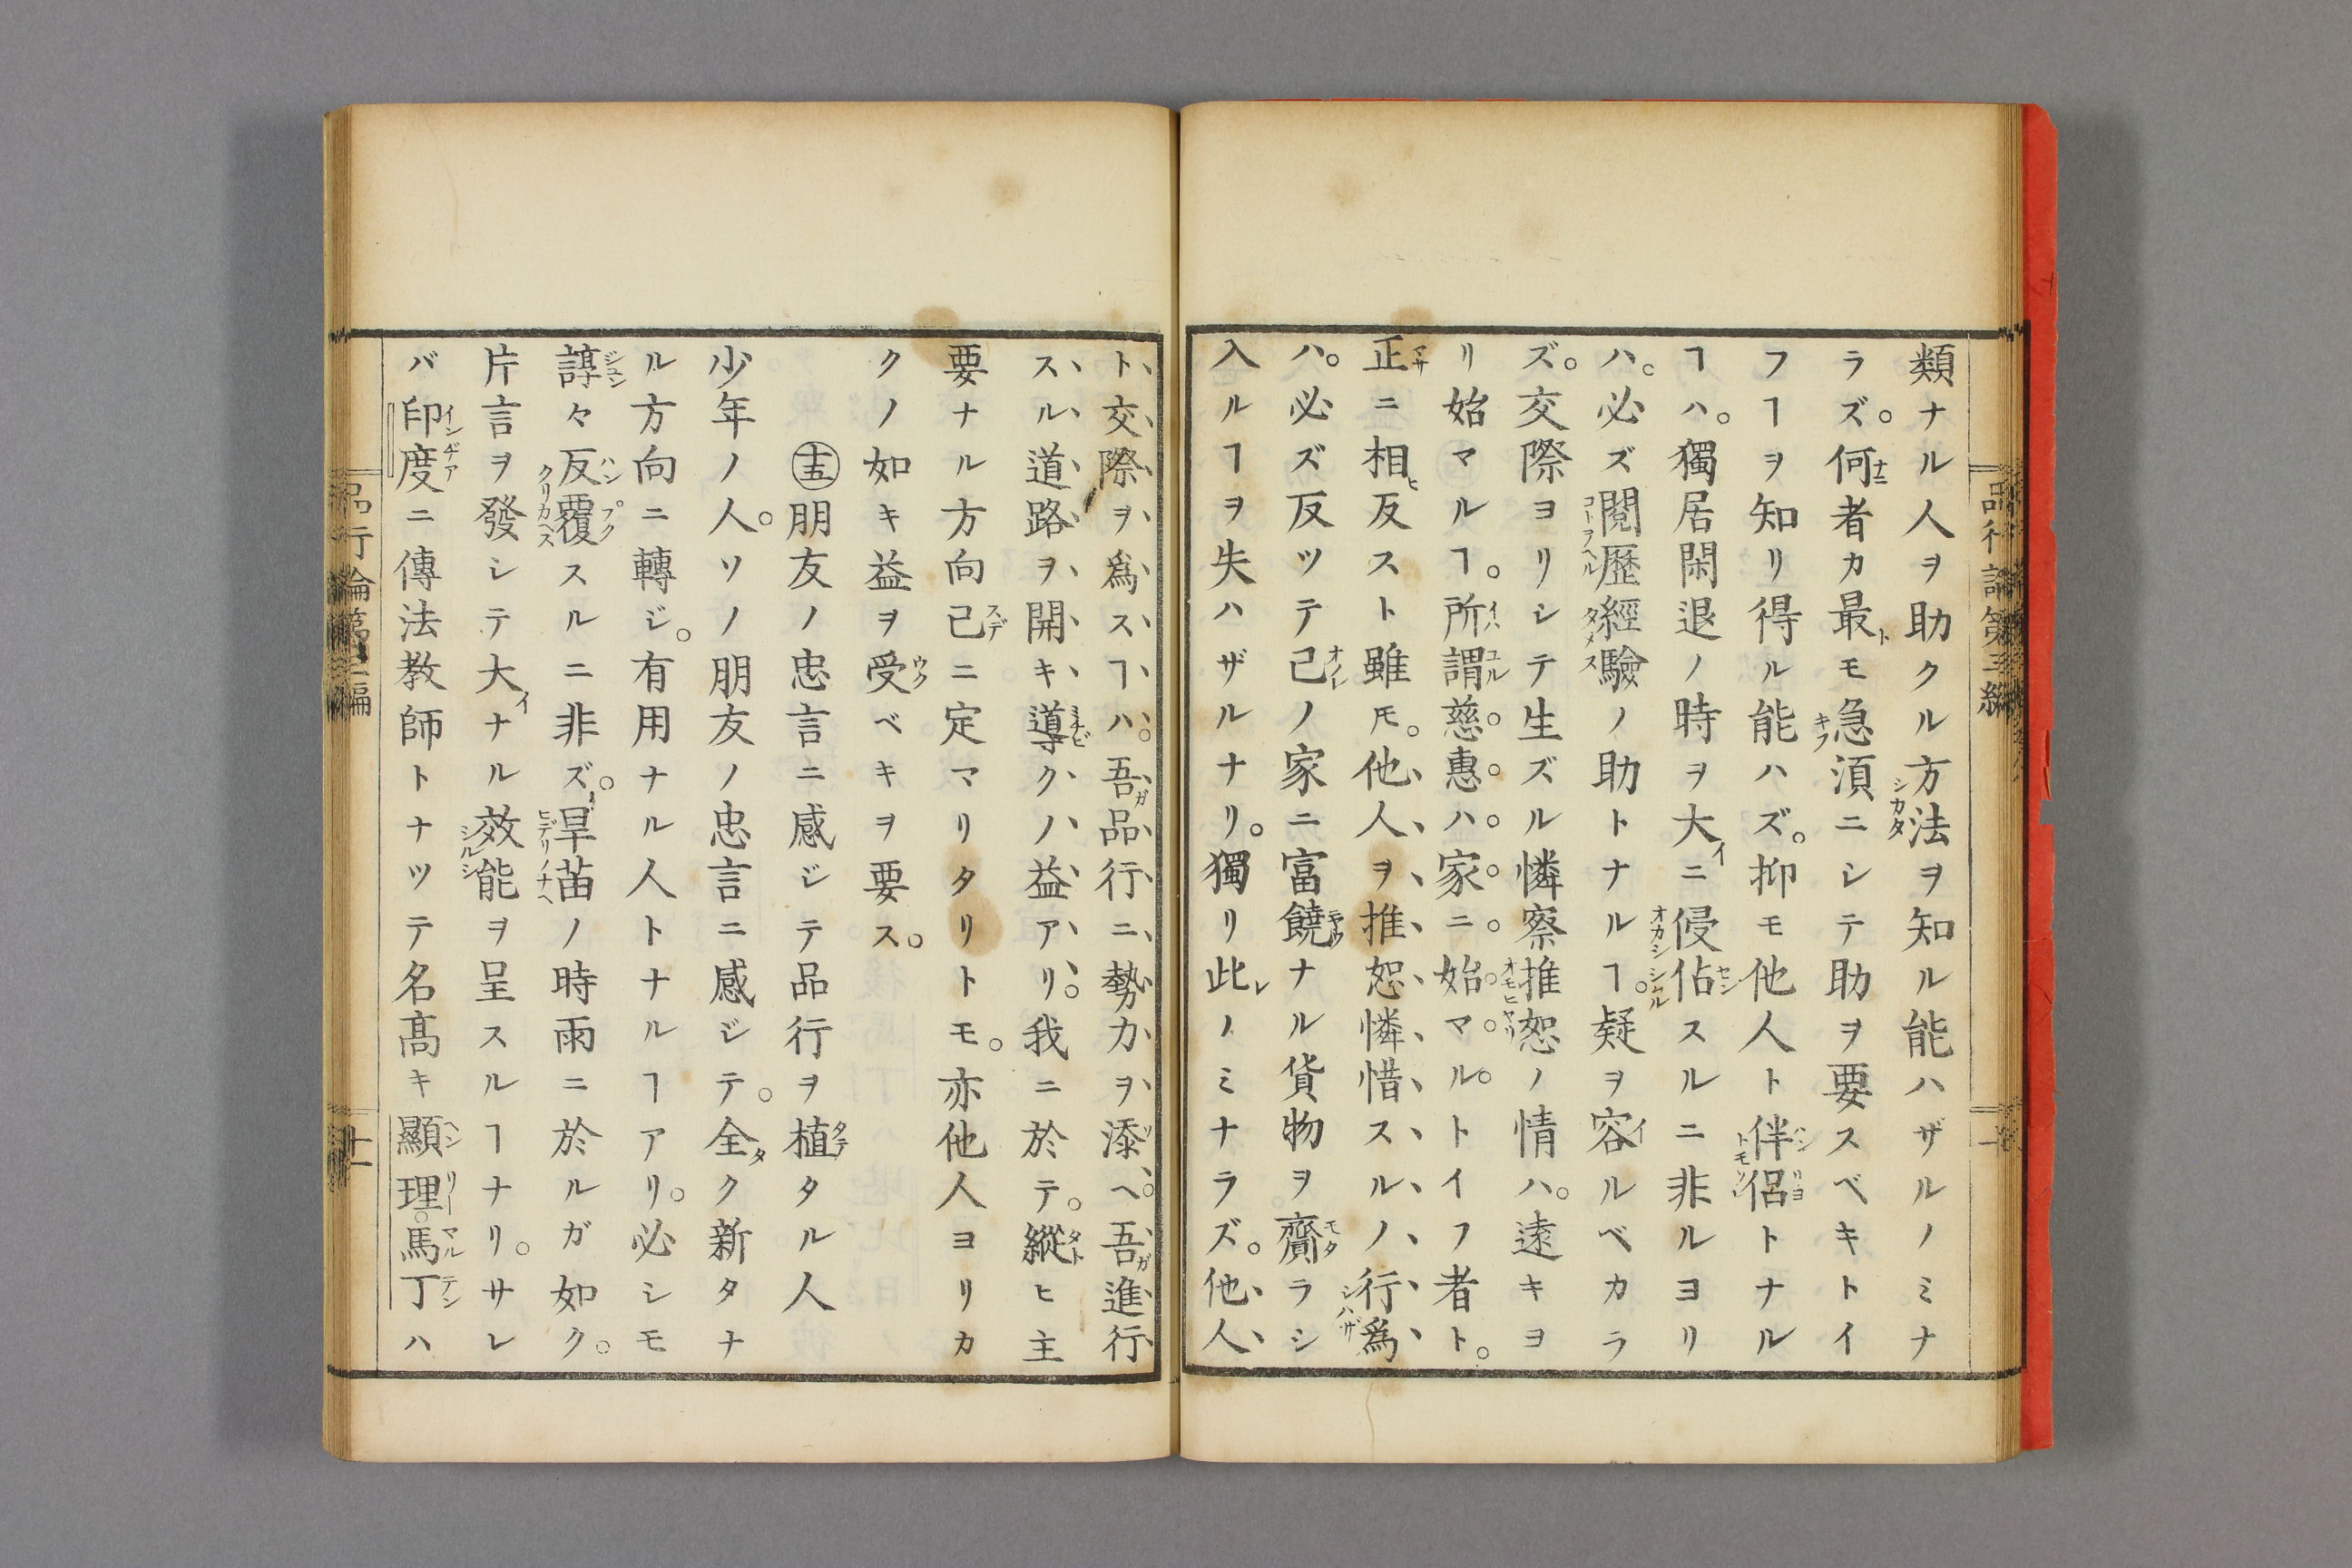 類ナル人ヲ助クル方法ヲ知ル能ハザルノミナ
ラズ。何者カ最モ急湏ニシテ助ヲ要スベキトイ
フヿヲ知リ得ル能ハズ。抑モ他人ト伴侶トナル
ヿハ。獨居閑退ノ時ヲ大ニ侵佔スルニ非ルヨリ
ハ。必ズ閲歷經驗ノ助トナルヿ。疑ヲ容ルベカラ
ズ。交際ヨリシテ生ズル憐察推恕ノ情ハ。遠キヨ
リ始マルヿ。所謂慈惠ハ家ニ始マルトイフ者ト。
正ニ相反スト雖𪜈。他人ヲ推恕憐惜スルノ行爲
ハ。必ズ反ツテ己ノ家ニ富饒ナル貨物ヲ齎ラシ
入ルヿヲ失ハザルナリ。獨リ此ノミナラズ。他人
ト交際ヲ爲スヿハ。吾品行ニ勢力ヲ添ヘ。吾進行
スル道路ヲ開キ導クノ益アリ。我ニ於テ。縱ヒ主
要ナル方向已ニ定マリタリトモ。亦他人ヨリカ
クノ如キ益ヲ受ベキヲ要ス。
㊉五 朋友ノ忠言ニ感ジテ品行ヲ植タル人
少年ノ人。ソノ朋友ノ忠言ニ感ジテ。全ク新タナ
ル方向ニ轉ジ。有用ナル人トナルヿアリ。必シモ
諄々反覆スルニ非ズ。旱苗ノ時雨ニ於ルガ如ク。
片言ヲ發シテ大ナル效能ヲ呈スルヿナリ。サレ
バ印度ニ傳法教師トナツテ名高キ顯理。馬丁ハ
品行論第三編
十一